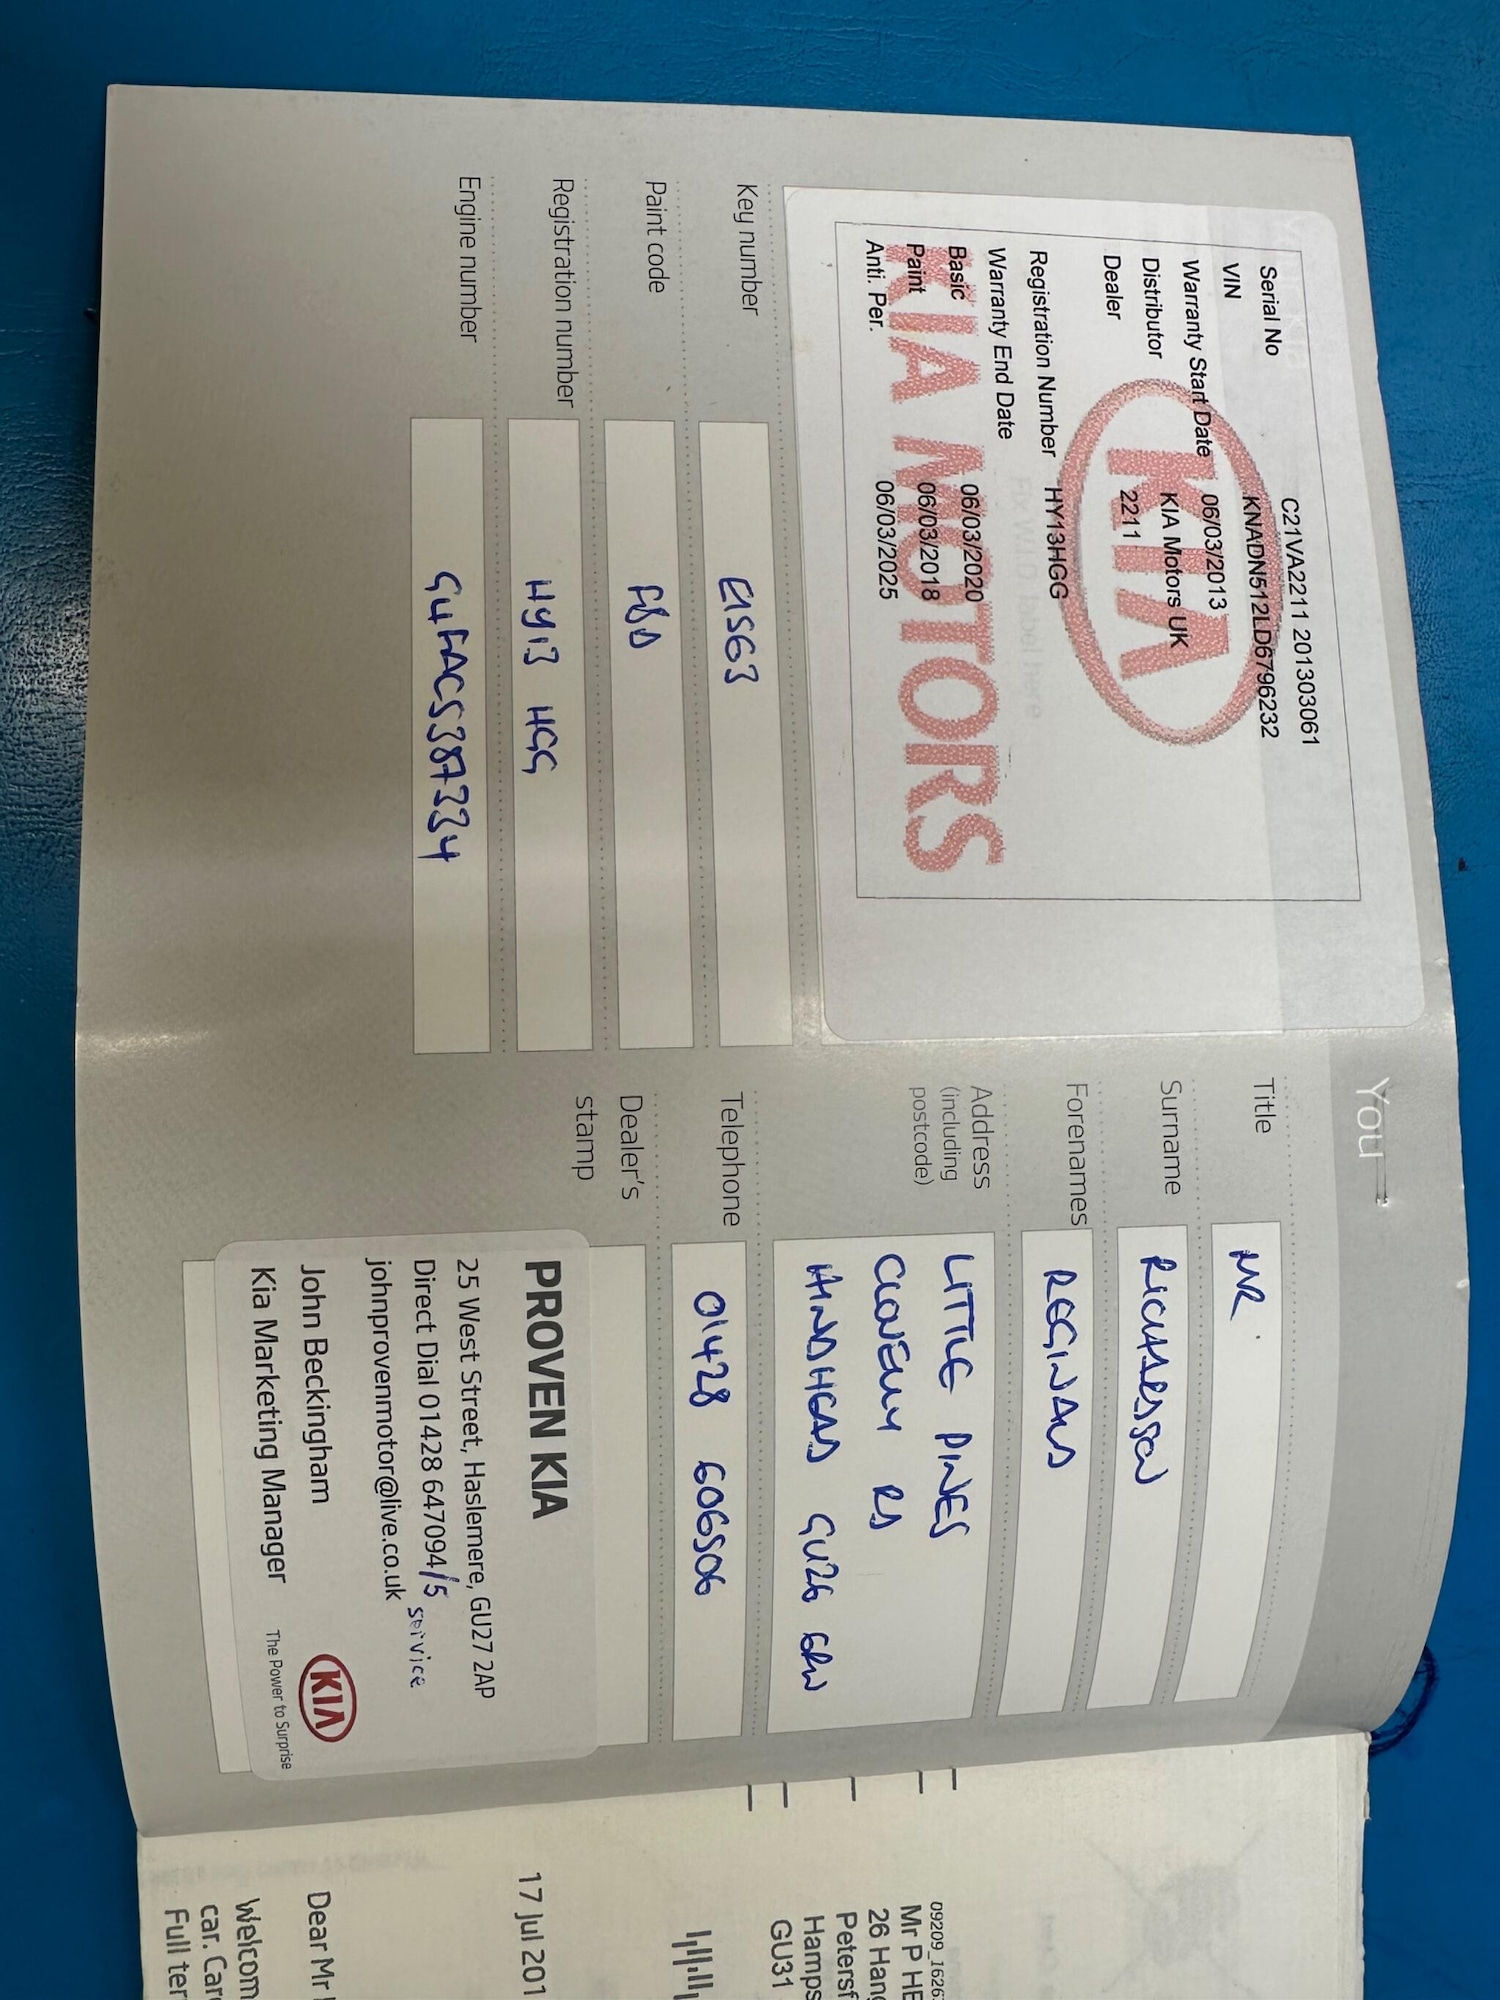 Serial No C21VA2211 201303061
VIN KNADN512LD6796232
Warranty Start Date 06/03/2013
Distributor KIA Motors UK
Dealer 2211
Registration Number HY13HGG
Warranty End Date
Basic 06/03/2020
Paint 06/03/2018
Anti. Per. 06/03/2025
KIA
KIA MOTORS
Key number
Paint code F8D
Registration number HY13 HGG
Engine number G4FACS387334
You
Title MR
Surname RICHARDSON
Forenames REGINALD
Address (including postcode) LITTLE PINES
CLOVELLY RD
HINDHEAD GU26 6RW
Telephone 01428 606506
Dealer's stamp
PROVEN KIA
25 West Street, Haslemere, GU27 2AP
Direct Dial 01428 647094/5 service
johnprovenmotor@live.co.uk
John Beckingham
Kia Marketing Manager
KIA
The Power to Surprise
09209_1626
Mr P HE
26 Hang
Petersf
Hamps
GU31
17 Jul 201
Dear Mr
Welcom
car. Car
Full ter